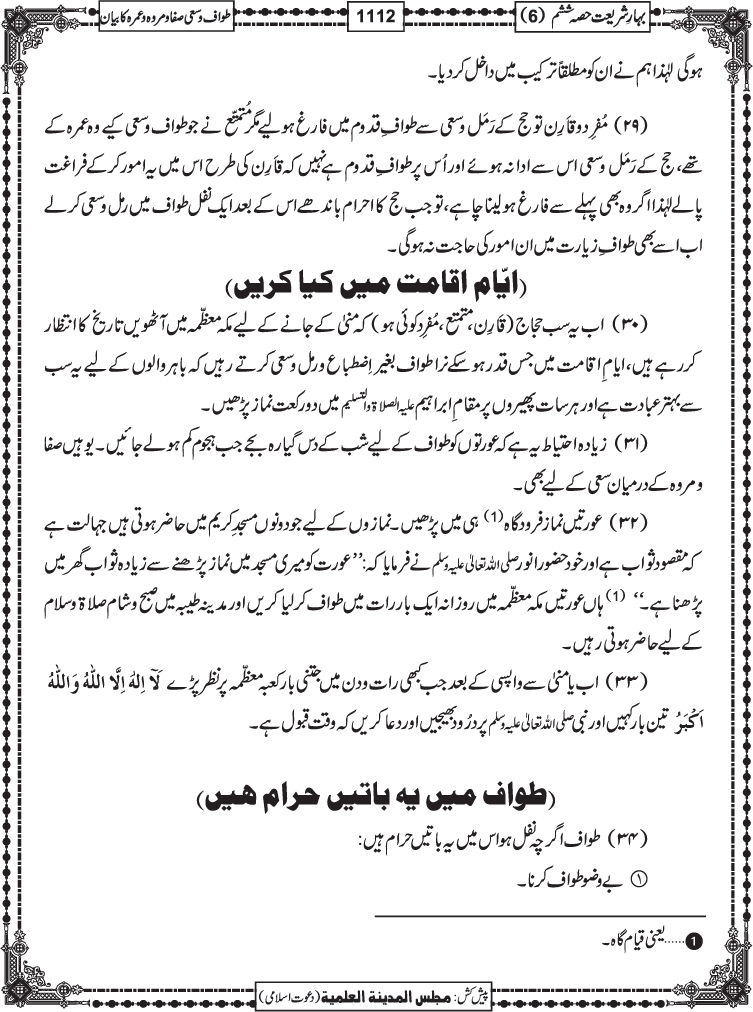 بہارِ شریعت حصہ ششم (6)
1112
طواف و سعی صفا و مروہ و عمرہ کا بیان
ہوگی لہٰذا ہم نے ان کو مطلقاً ترکیب میں داخل کردیا۔
(۲۹) مُفرِد و قارِن تو حج کے رَمَل و سعی سے طوافِ قدوم میں فارغ ہولیے مگر مُتمتِّع نے جو طواف و سعی کیے وہ عمرہ کے
تھے، حج کے رَمَل و سعی اس سے ادا نہ ہوئے اور اُس پر طوافِ قدوم ہے نہیں کہ قارِن کی طرح اس میں یہ امور کرکے فراغت
پالے لہٰذا اگر وہ بھی پہلے سے فارغ ہولینا چاہے، تو جب حج کا احرام باندھے اس کے بعد ایک نفل طواف میں رمل و سعی کرلے
اب اسے بھی طوافِ زیارت میں ان امور کی حاجت نہ ہوگی۔
(ایّام اقامت میں کیا کریں)
(۳۰) اب یہ سب حجاج (قارِن، متمتع، مُفرِد کوئی ہو) کہ منیٰ کے جانے کے لیے مکہ معظّمہ میں آٹھویں تاریخ کا انتظار
کر رہے ہیں، ایامِ اقامت میں جس قدر ہوسکے نرا طواف بغیر اِضطباع و رمل و سعی کرتے رہیں کہ باہر والوں کے لیے یہ سب
سے بہتر عبادت ہے اور ہر سات پھیروں پر مقامِ ابراہیم علیہ الصلاۃ والتسلیم میں دو رکعت نماز پڑھیں۔
(۳۱) زیادہ احتیاط یہ ہے کہ عورتوں کو طواف کے لیے شب کے دس گیارہ بجے جب ہجوم کم ہو لے جائیں۔ یوہیں صفا
و مروہ کے درمیان سعی کے لیے بھی۔
(۳۲) عورتیں نماز فرودگاہ (1) ہی میں پڑھیں۔ نمازوں کے لیے جو دونوں مسجدِ کریم میں حاضر ہوتی ہیں جہالت ہے
کہ مقصود ثواب ہے اور خود حضور انور صلی اللہ تعالیٰ علیہ وسلم نے فرمایا کہ: ’’عورت کو میری مسجد میں نماز پڑھنے سے زیادہ ثواب گھر میں
پڑھنا ہے۔‘‘ (1) ہاں عورتیں مکہ معظّمہ میں روزانہ ایک بار رات میں طواف کرلیا کریں اور مدینہ طیبہ میں صبح و شام صلاۃ و سلام
کے لیے حاضر ہوتی رہیں۔
(۳۳) اب یا منیٰ سے واپسی کے بعد جب کبھی رات و دن میں جتنی بار کعبہ معظّمہ پر نظر پڑے لَآ اِلٰہَ اِلَّا اللّٰہُ وَاللّٰہُ
اَکْبَرُ تین بار کہیں اور نبی صلی اللہ تعالیٰ علیہ وسلم پر درُود بھیجیں اور دعا کریں کہ وقتِ قبول ہے۔
(طواف میں یہ باتیں حرام ہیں)
(۳۴) طواف اگرچہ نفل ہو اس میں یہ باتیں حرام ہیں:
① بے وضو طواف کرنا۔
❶......یعنی قیام گاہ۔
پیش کش: مجلس المدینة العلمیة (دعوت اسلامی)